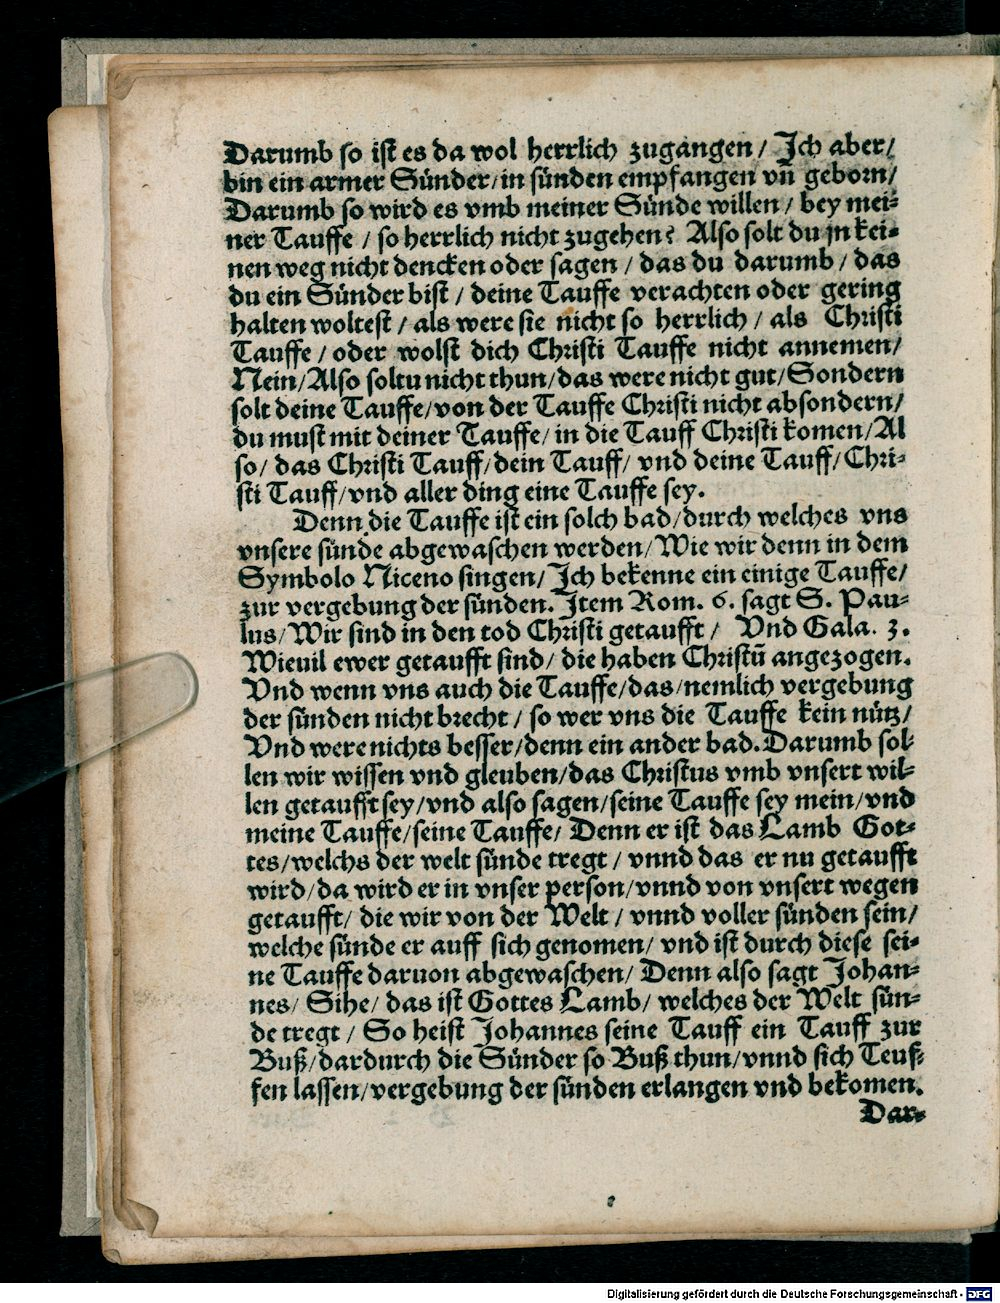 Darumb so ist es da wol herrlich zugangen / Ich aber /
bin ein armer Sünder / in sünden empfangen vñ geborn /
Darumb so wird es vmb meiner Sünde willen / bey mei=
ner Tauffe / so herrlich nicht zugehen? Also solt du jn kei=
nen weg nicht dencken oder sagen / das du darumb / das
du ein Sünder bist / deine Tauffe verachten oder gering
halten woltest / als were sie nicht so herrlich / als Christi
Tauffe / oder wolst dich Christi Tauffe nicht annemen /
Nein / Also soltu nicht thun / das were nicht gut / Sondern
solt deine Tauffe / von der Tauffe Christi nicht absondern /
du must mit deiner Tauffe / in die Tauff Christi komen / Al
so / das Christi Tauff / dein Tauff / vnd deine Tauff / Chri=
sti Tauff / vnd aller ding eine Tauffe sey.
Denn die Tauffe ist ein solch bad / durch welches vns
vnsere sünde abgewaschen werden / Wie wir denn in dem
Symbolo Niceno singen / Ich bekenne ein einige Tauffe /
zur vergebung der sünden. Item Rom. 6. sagt S. Pau=
lus / Wir sind in den tod Christi getaufft / Vnd Gala. 3.
Wieuil ewer getaufft sind / die haben Christū angezogen.
Vnd wenn vns auch die Tauffe / das / nemlich vergebung
der sünden nicht brecht / so wer vns die Tauffe kein nütz /
Vnd were nichts besser / denn ein ander bad. Darumb sol=
len wir wissen vnd gleuben / das Christus vmb vnsert wil=
len getaufft sey / vnd also sagen / seine Tauffe sey mein / vnd
meine Tauffe / seine Tauffe / Denn er ist das Lamb Got=
tes / welchs der welt sünde tregt / vnnd das er nu getaufft
wird / da wird er in vnser person / vnnd von vnsert wegen
getaufft / die wir von der Welt / vnnd voller sünden sein /
welche sünde er auff sich genomen / vnd ist durch diese sei=
ne Tauffe daruon abgewaschen / Denn also sagt Johan=
nes / Sihe / das ist Gottes Lamb / welches der Welt sün=
de tregt / So heist Johannes seine Tauff ein Tauff zur
Buß / dardurch die Sünder so Buß thun / vnnd sich Teuf=
fen lassen / vergebung der sünden erlangen vnd bekomen.
Dar=
Digitalisierung gefördert durch die Deutsche Forschungsgemeinschaft - DFG